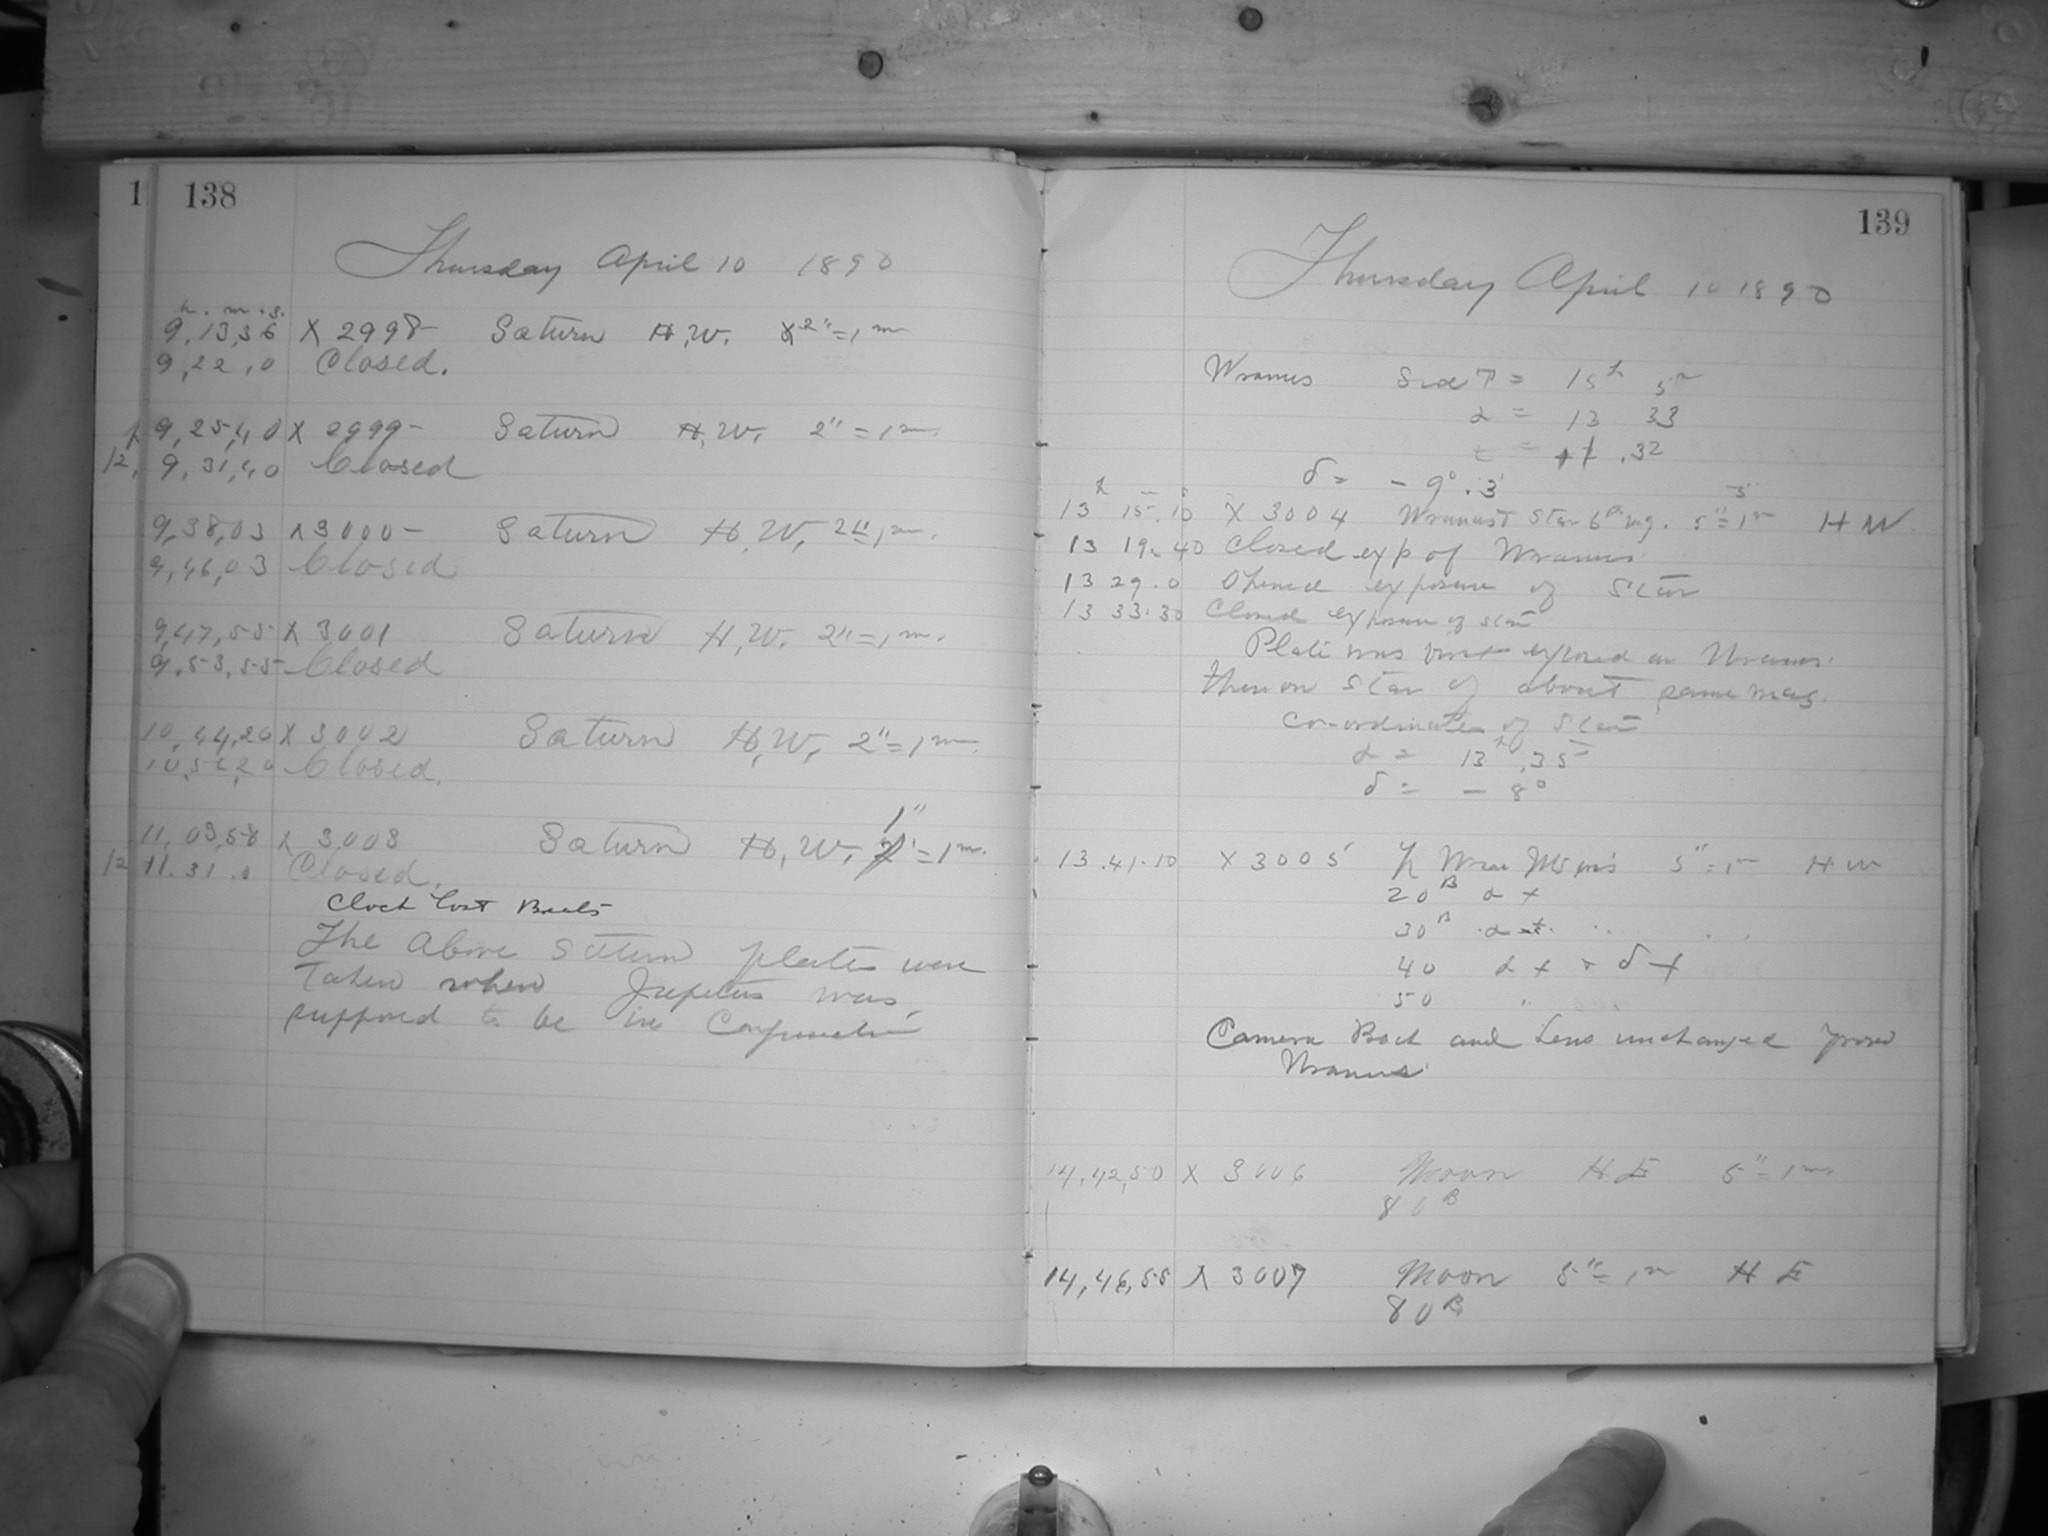 1 138
Thursday April 10 1890
h. m. s.
9,13,36 X 2998- Saturn H.W. 2"=1m
9,22,0 Closed.
9,25,40 X 2999- Saturn H,W, 2"=1m.
12, 9,31,40 Closed
9,38,03 X 3000- Saturn H,W, 2"=1m.
9,46,03 Closed
9,47,55 X 3001 Saturn H,W. 2"=1m.
9.53,55 Closed
10,44,20 X 3002 Saturn H,W, 2"=1m.
Closed.
1"
11,03,58 X 3003 Saturn H,W, =1m.
12 11.31.0 Closed.
Clock lost Beats
The Above Saturn plates were
Taken when Japetus was
supposed to be in Conjunction
139
Thursday April 10 1890
Uranus Sid T = 15h 5m
α = 13 33
t = .32
δ = - 9°.3
13h 15m.10s X 3004 Star 6th mg. 5"=1m H W.
13 19.40 Closed exp of Uranus
13 29.0 Opened exposure of Star
13 33.30 Closed exposure of star
Plate was first exposed on Uranus.
then on Star of about same mag.
Co-ordinates of Star
α = 13h.35
δ = - 8°
13.41.10 X 3005 5"=1m H W
20B α +
30B α +
40 α + δ +
50 "
Camera Back and Lens unchanged from
Uranus
14,42,50 X 3006 Moon H E 5"=1m.
80B
14,46,55 X 3007 Moon 5"=1m H E
80B